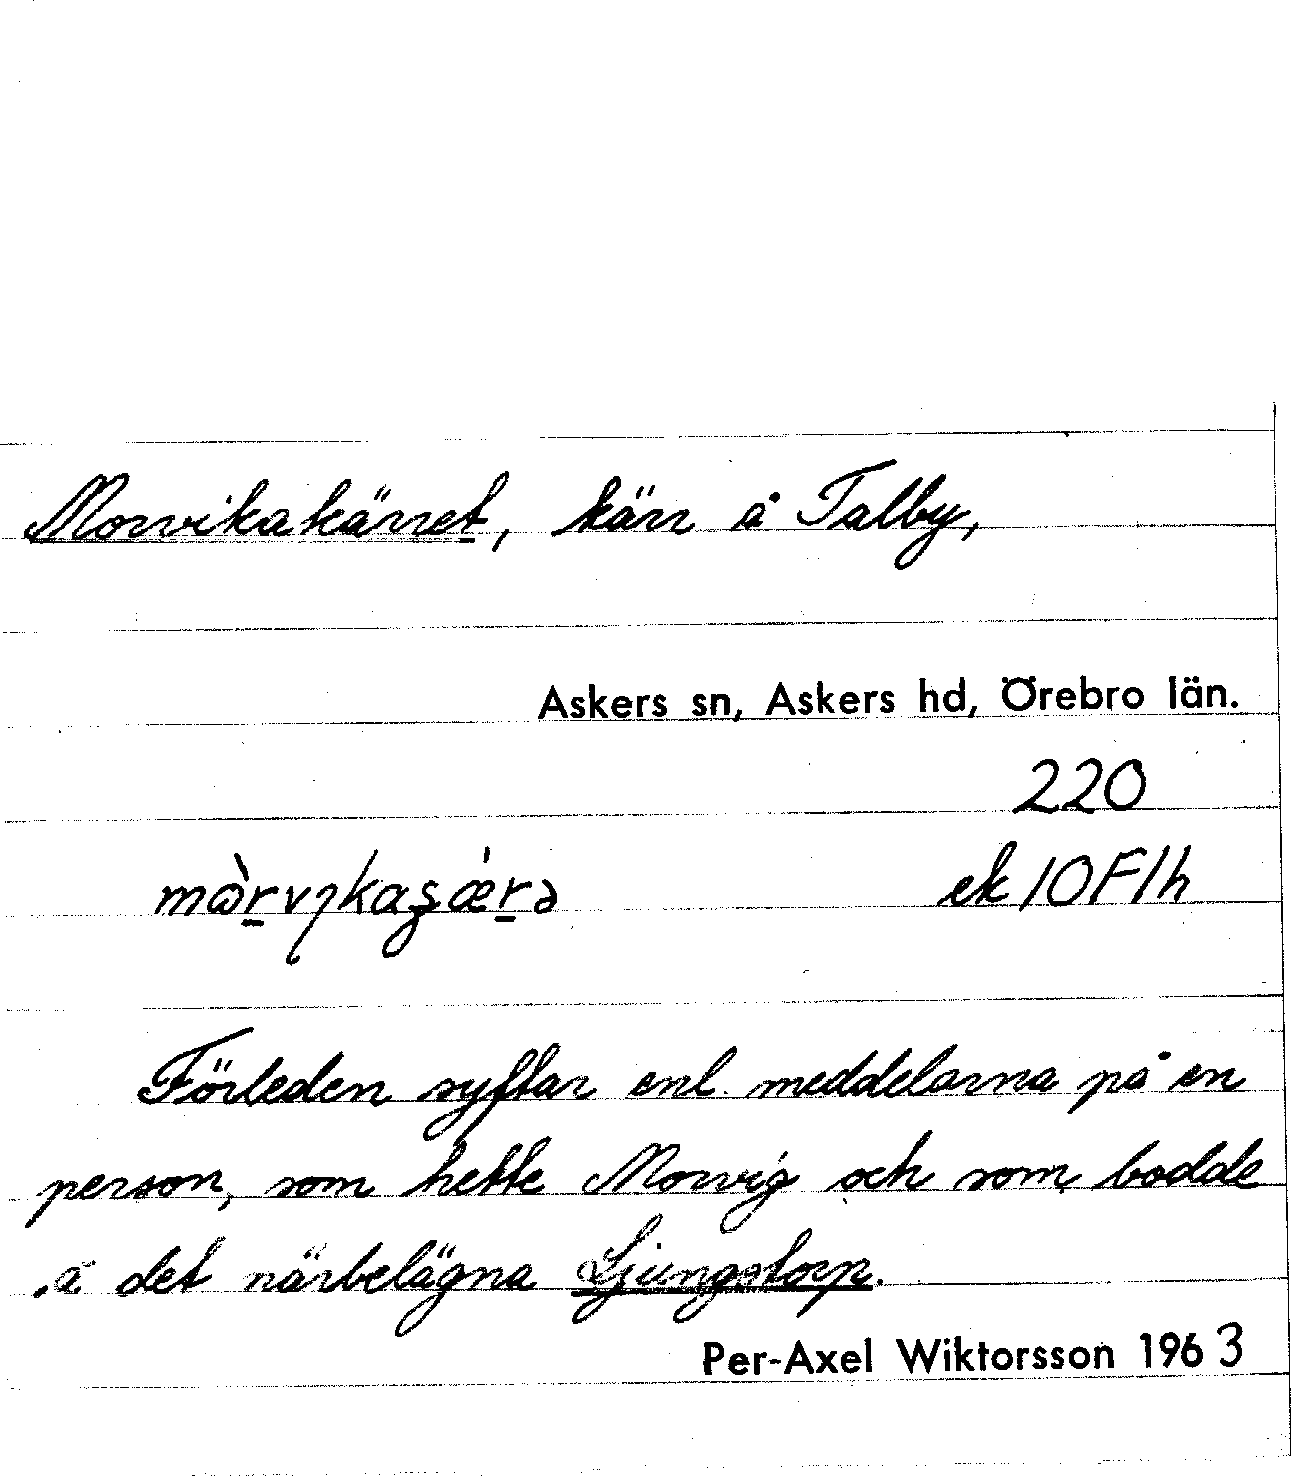 Morvikakärret, kärr å Talby,
Askers sn, Askers hd, Örebro län.
220
mɷ̀rvıkaʂǽrə ek 10F1h
Förleden syftar enl. meddelarna på en
person, som hette Morvig och som bodde
å det närbelägna Ljungstorp.
Per-Axel Wiktorsson 1963